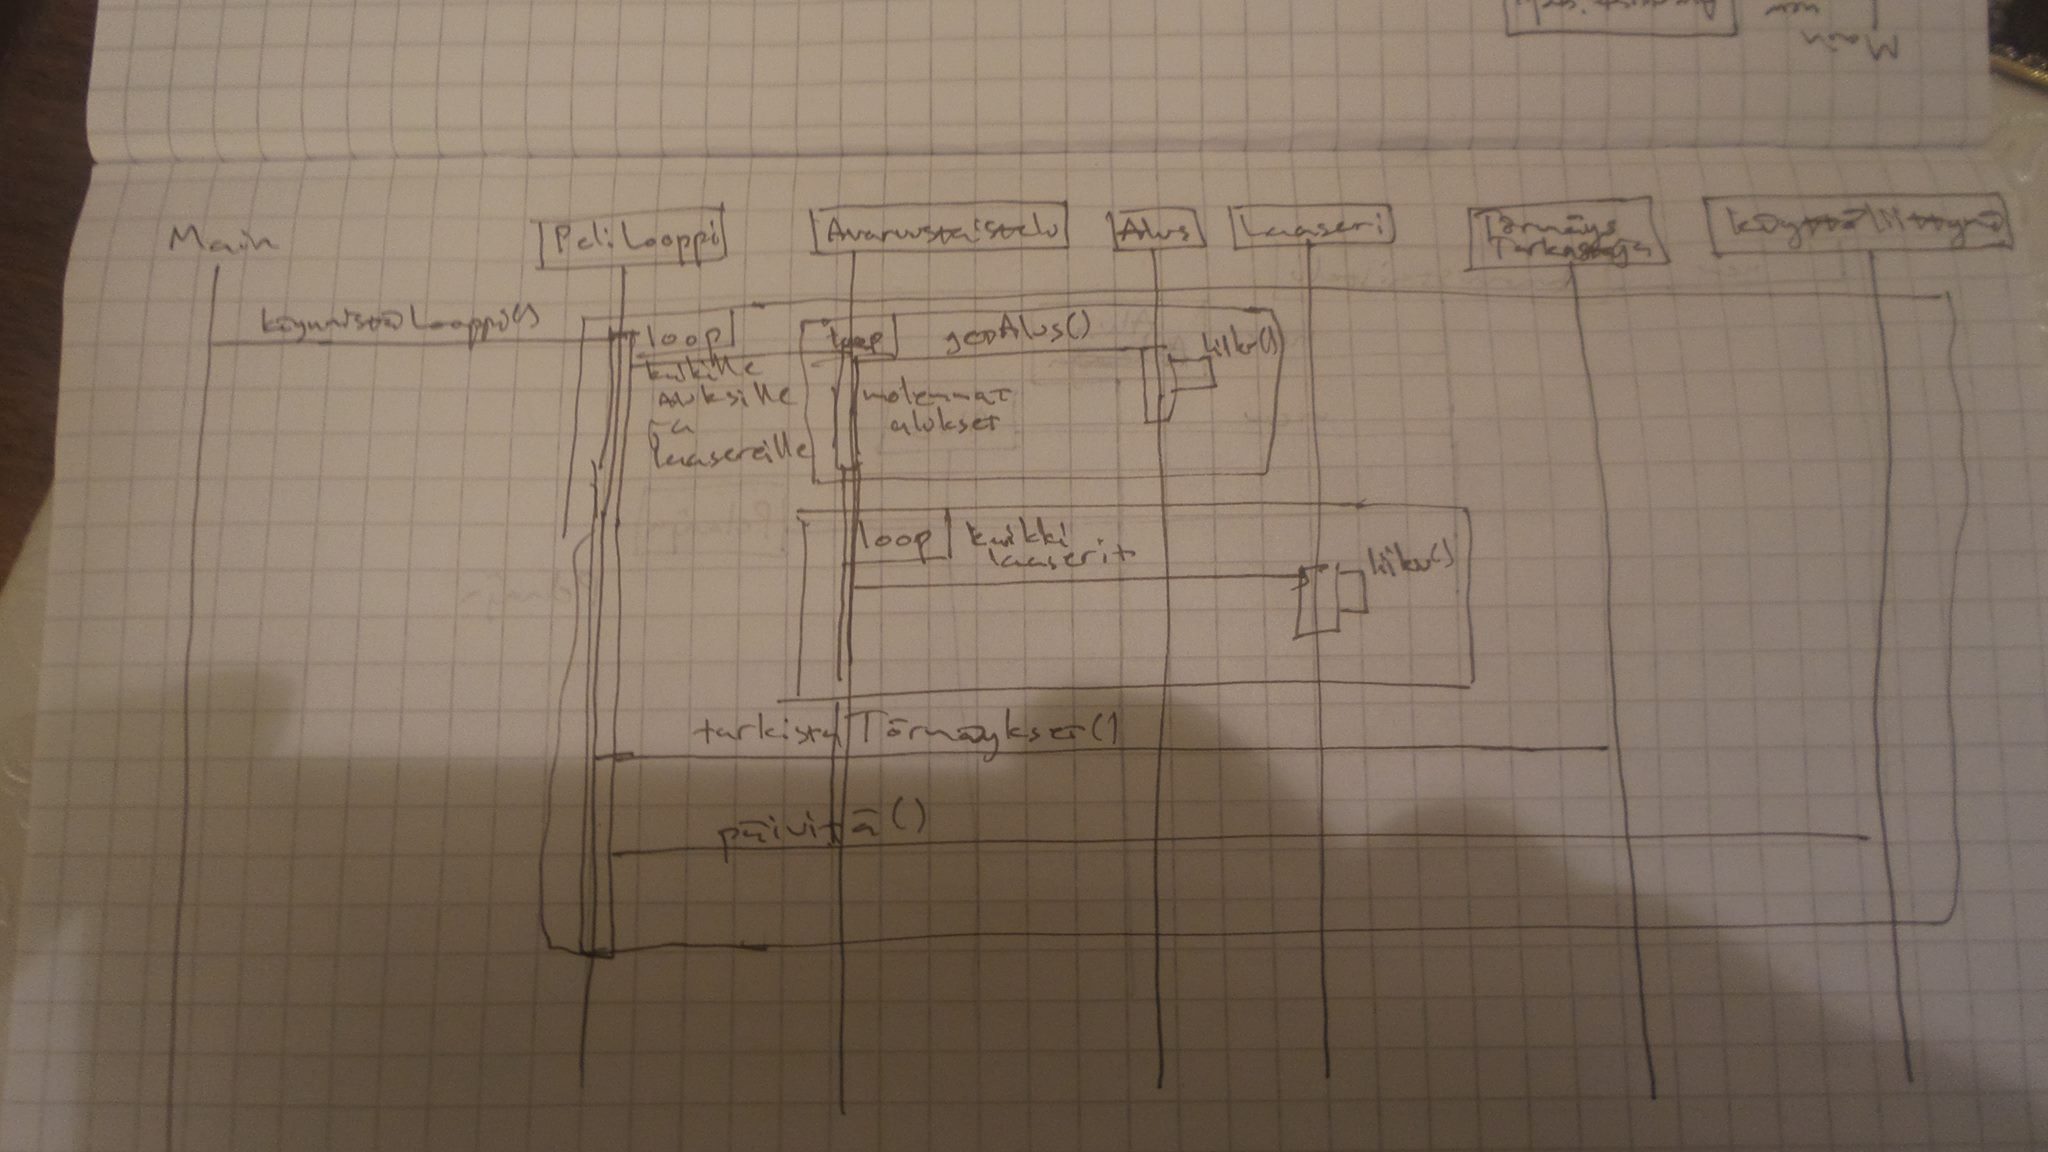 Main
PeliLooppi
Avaruustaistelu
Alus
Laaseri
Törmäys
Tarkastaja
Käyttöliittymä
käynnistäLooppi()
loop
kaikille
aluksille
ja
laasereille
loop
getAlus()
liiku()
molemmat
alukset
loop
kaikki
laaserit
liiku()
tarkistaTörmäykset()
päivitä()
Main